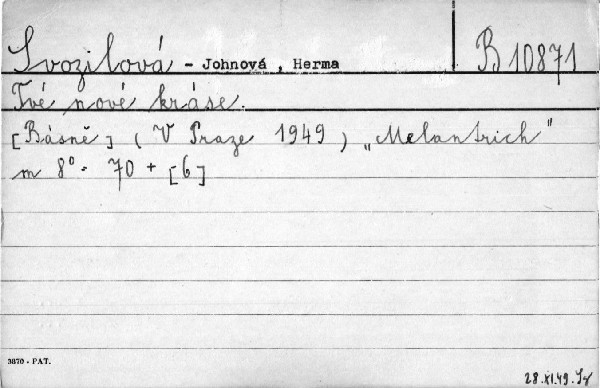 Svozilová - Johnová , Herma B 10871
Tvé nové kráse.
[Básně] ( V Praze 1949 ) „Melantrich"
m 8°. 70 + [6]
3870 - PAT.
28.XI.49.